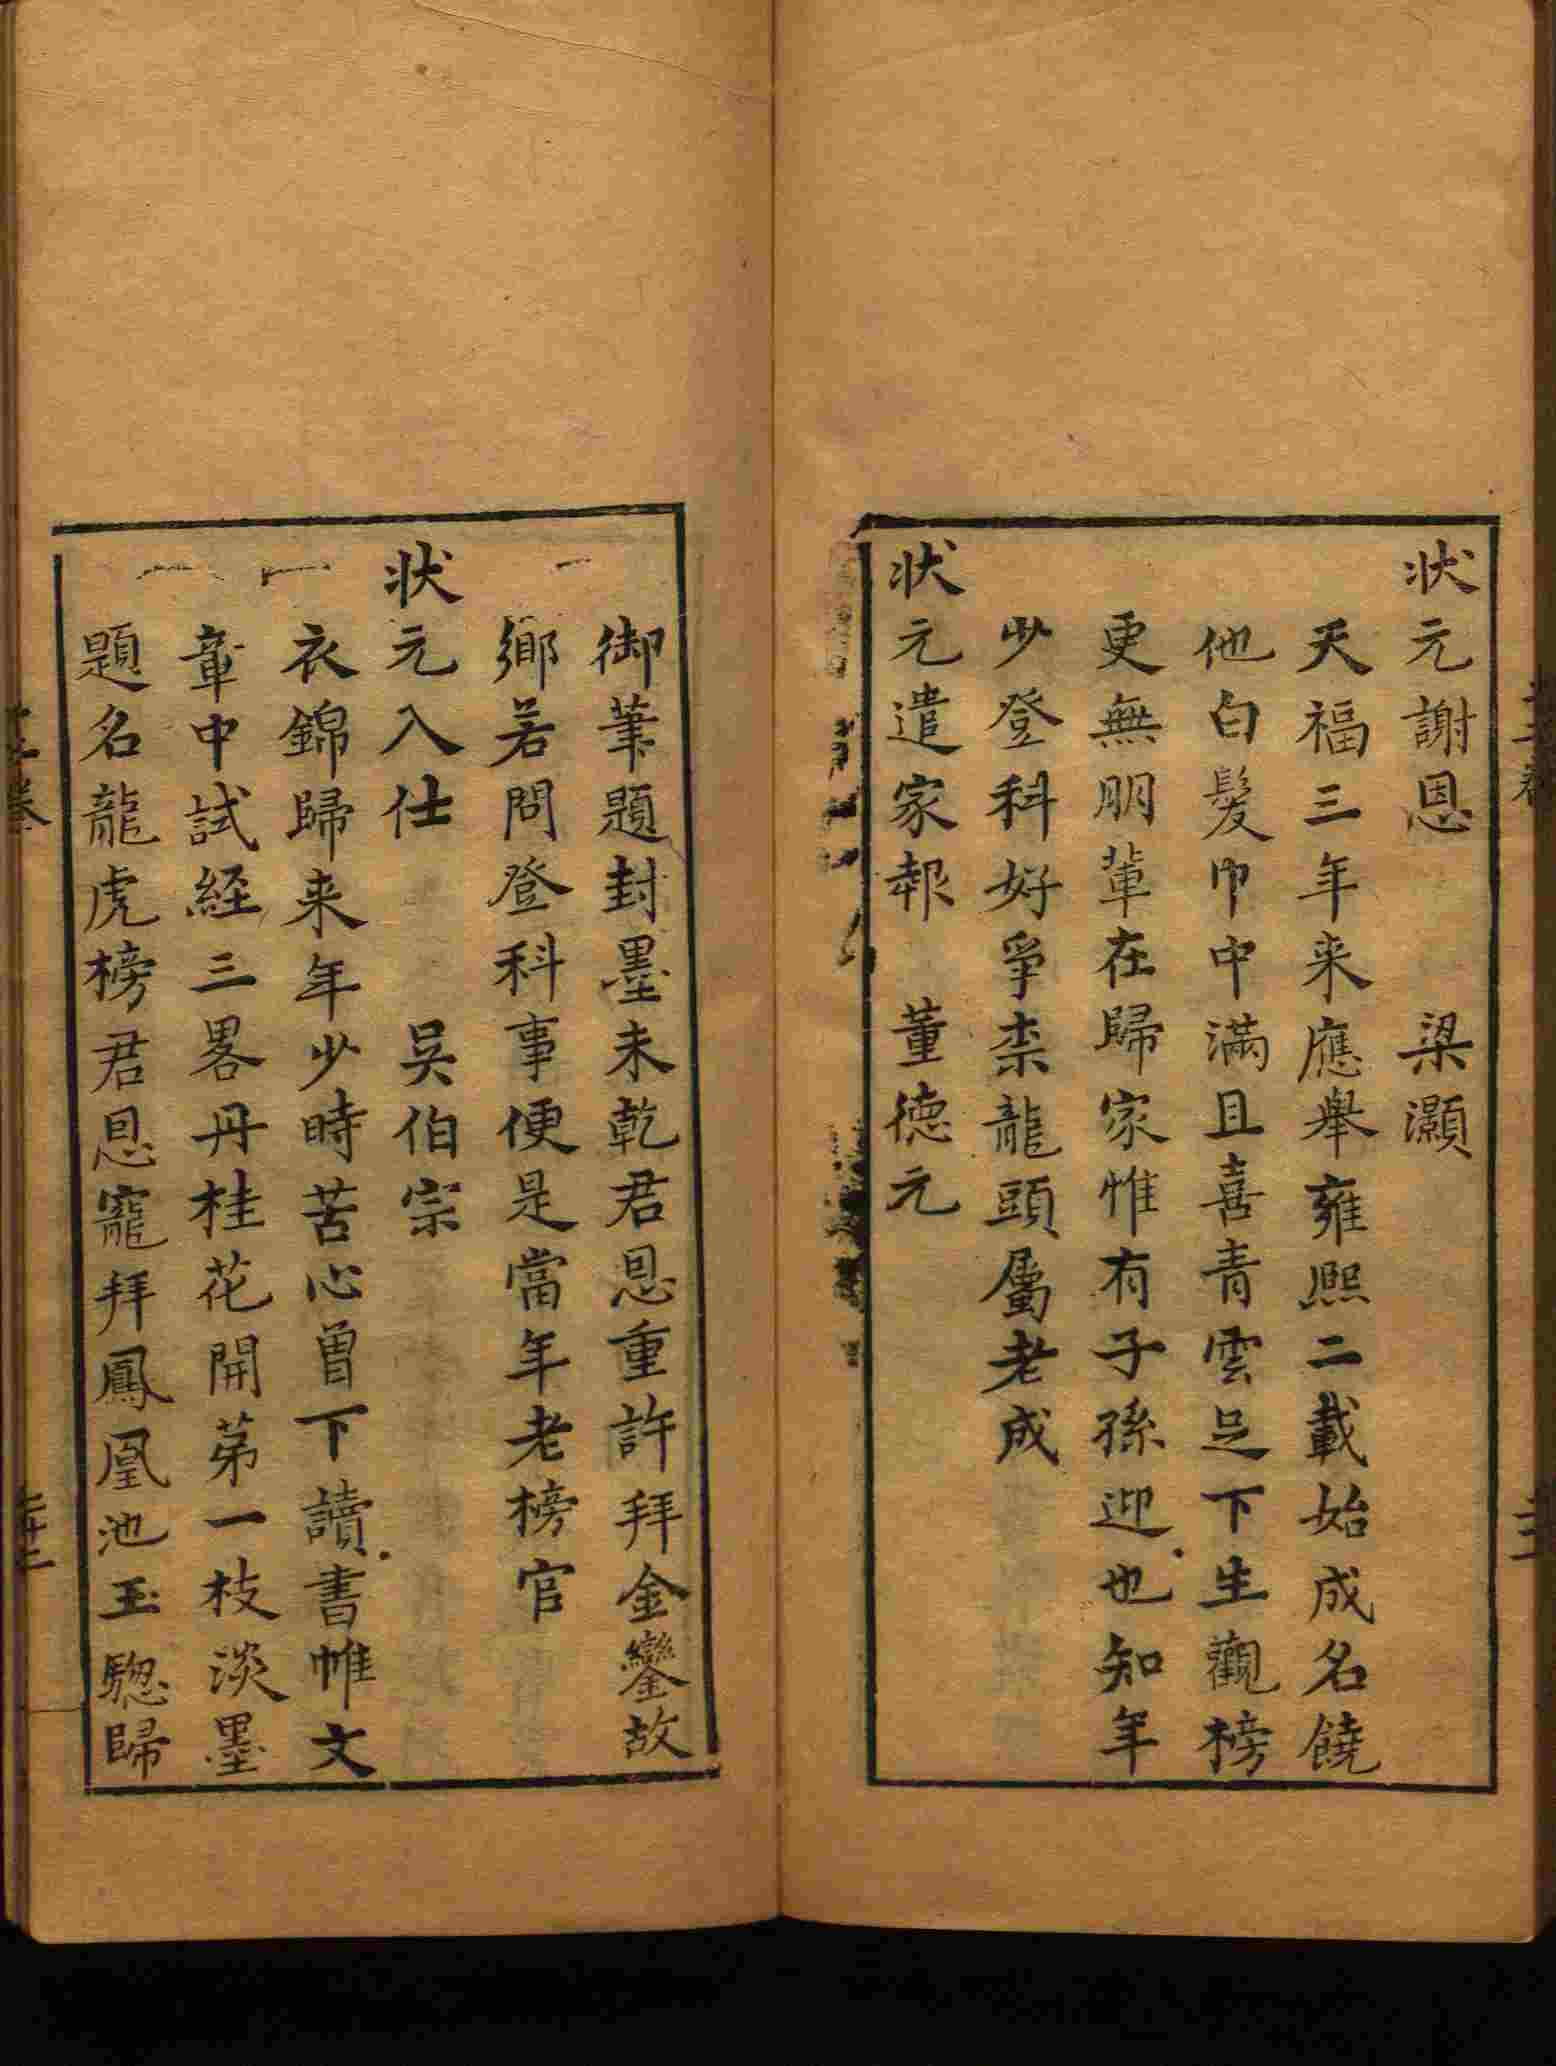 状元謝恩 梁灝
天福三年来應舉雍熙二載始成名饒
他白髮巾中滿且喜青雲足下生觀榜
更無朋輩在歸家惟有子孫迎也知年
少登科好爭柰龍頭屬老成
状元遣家報 董德元
御筆題封墨未乾君恩重許拜金鑾故
鄉若問登科事便是當年老榜官
状元入仕 吳伯宗
衣錦歸来年少時苦心曽下讀書帷文
章中試経三畧丹桂花開苐一枝淡墨
題名龍虎榜君恩寵拜鳳凰池玉騘歸